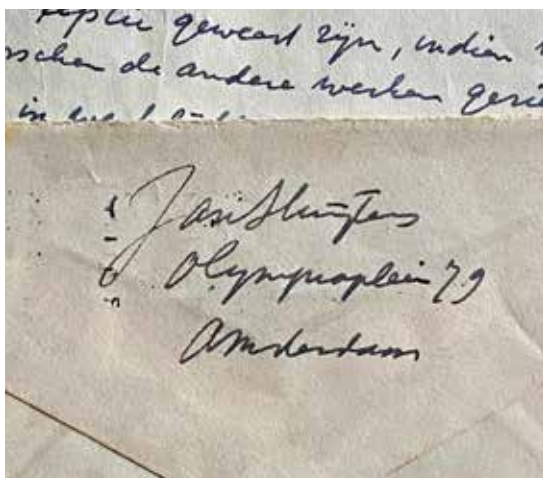 geweest zijn, indien
de andere werken
Jan Sluijters
Olympiaplein 79
Amsterdam